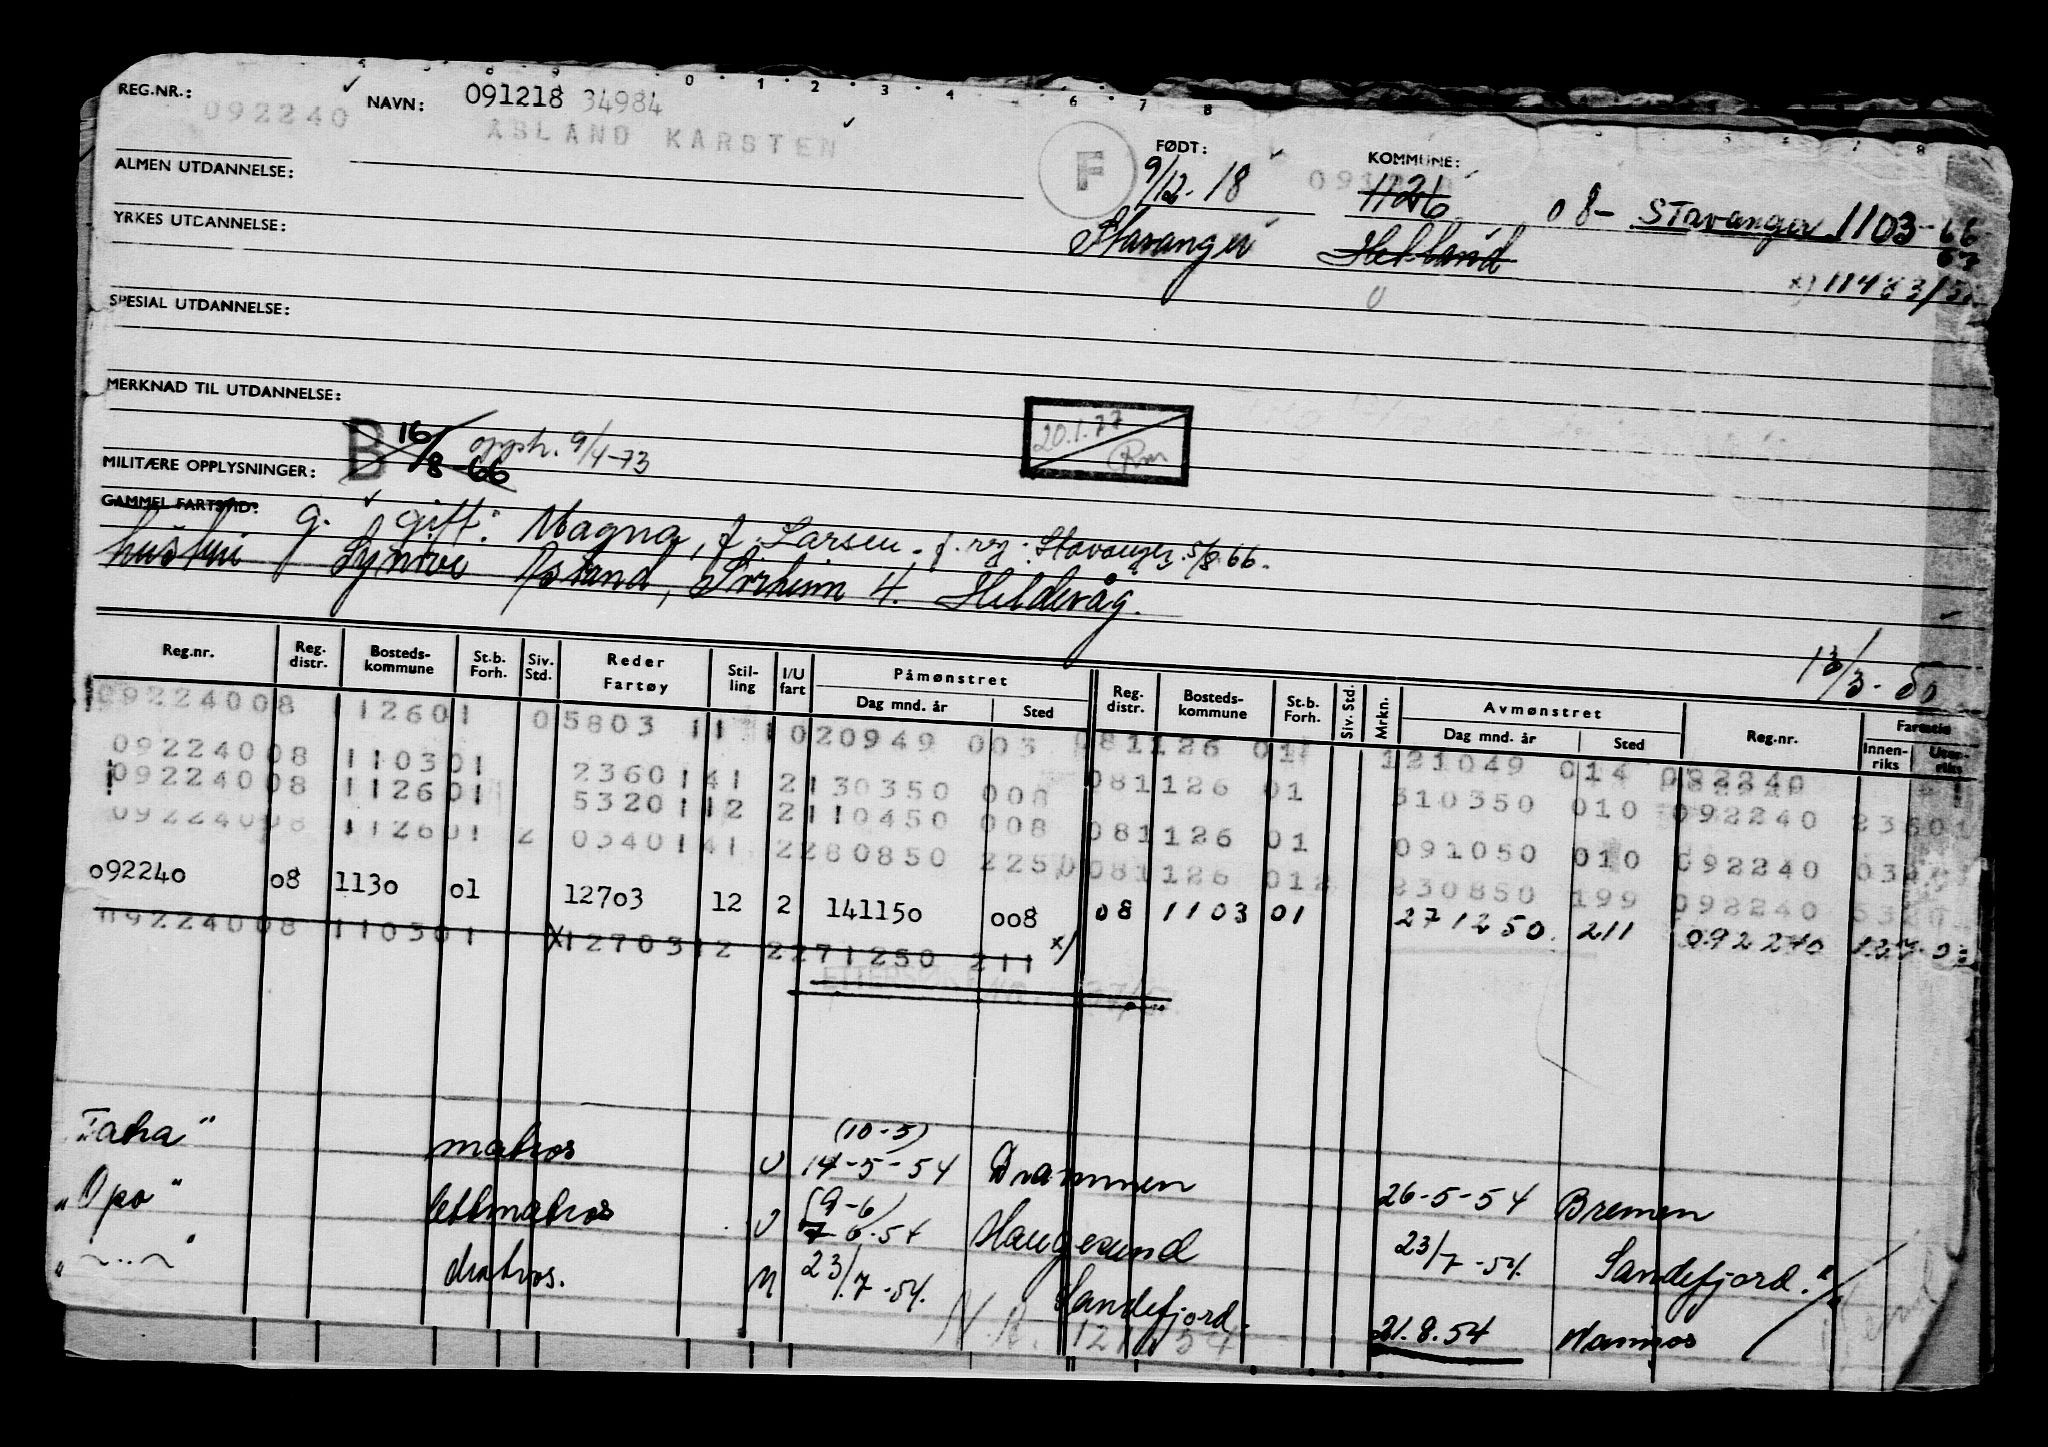 REG.NR.: 092240 NAVN: 091218 34984
ÅSLAND KARSTEN
F
FØDT: 9/12-18 KOMMUNE: 1126 08- Stavanger 1103-66
67
Stavanger Hetland
x) 11483/50
ALMEN UTDANNELSE:
YRKES UTDANNELSE:
SPESIAL UTDANNELSE:
MERKNAD TIL UTDANNELSE:
20.1.77
Rm
MILITÆRE OPPLYSNINGER: B 16/8-66 opph. 9/4-73
GAMMEL FARTSTID:
g. gift: Magna, f. Larsen. f. reg. Stavanger 5/8 66.
hustru Synnøve Åsland, Solheim 4. Hillevåg.
13/3-50
Reg.nr. Reg. distr. Bosteds-kommune St.b. Forh. Siv. Std. Reder Fartøy Stil-ling I/U fart Påmønstret Dag mnd. år Sted Reg. distr. Bosteds-kommune St.b. Forh. Siv. Std. Mrkn. Avmønstret Dag mnd. år Sted Reg.nr. Fartstid Innen-riks Uten-riks
09224008 112601 05803 11 1 020949 003 081126 01 121049 014 092240
09224008 110301 23601 41 2 130350 008 081126 01 310350 010 092240 23601
09224008 112601 53201 12 2 110450 008 081126 01 091050 010 092240
09224008 112601 2 03401 41 2 280850 225 081126 01 230850 199 092240 5320
092240 08 1130 01 12703 12 2 141150 008 08 1103 01 271250 211 092240 12703
09224008 110301 x 12703 12 2 271250 211 x)
"Fatra" matros U (10-5) 14-5-54 Drammen 26-5-54 Bremen
"Opo" lettmatros U (9-6) 7-6-54 Haugesund 23/7-54. Sandefjord.
" ~..~ " matros. U 23/7-54. Sandefjord. 21.8.54